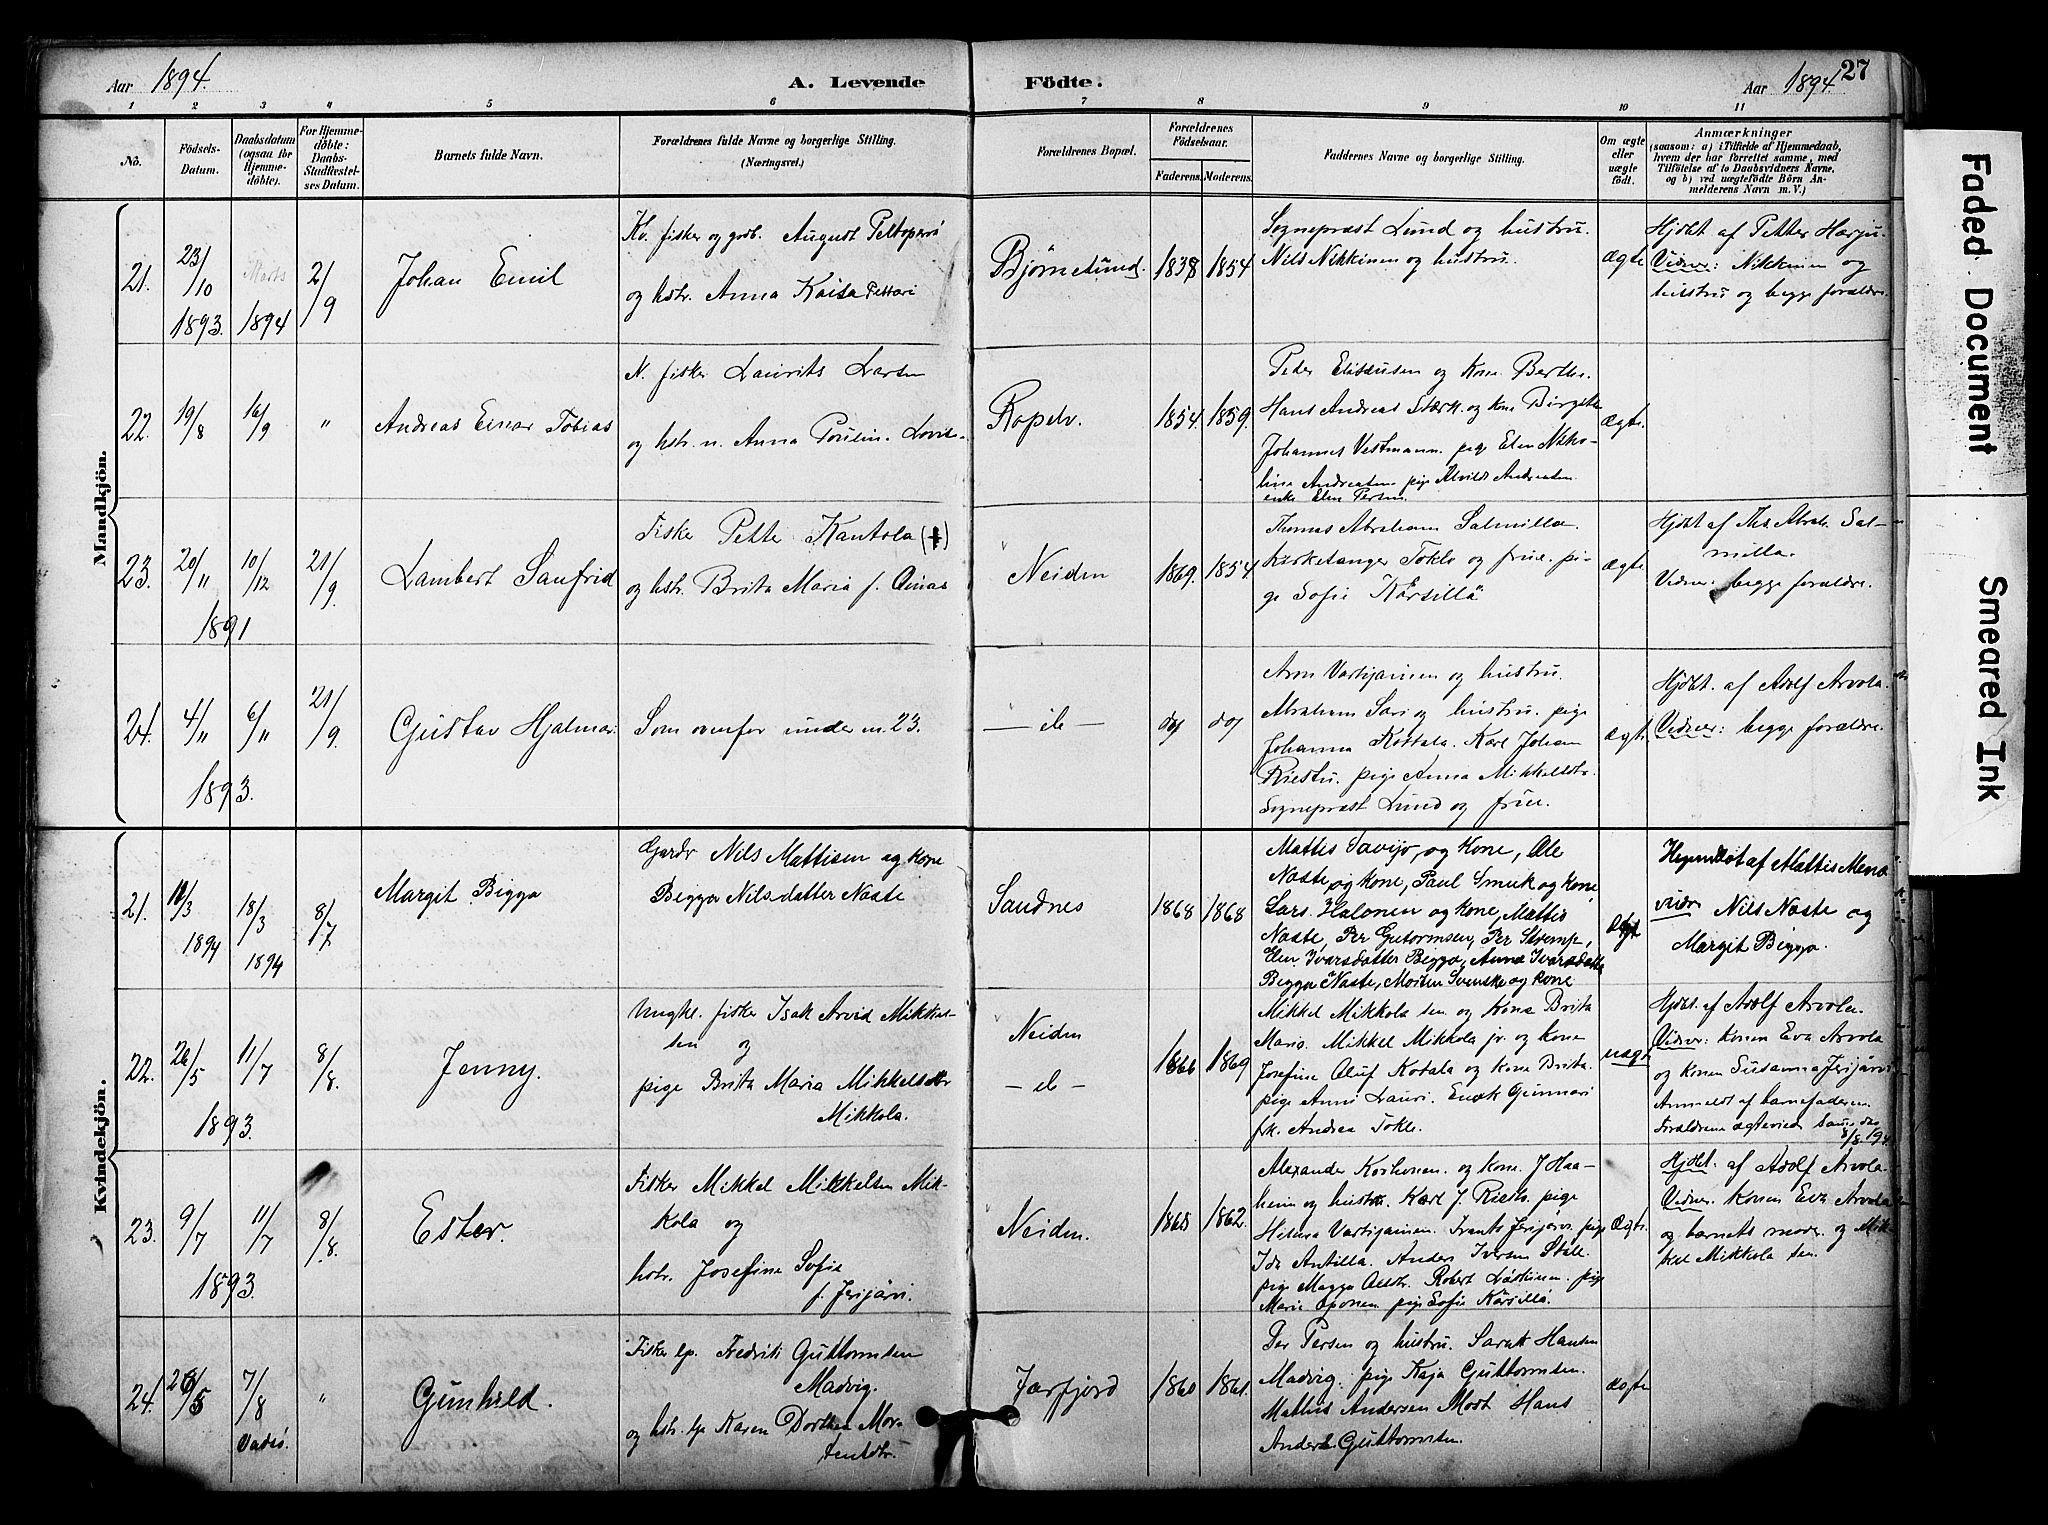 Aar 1894.
A. Levende
Födte.
Aar 1894.
27
1 2 3 4 5 6 7 8 9 10 11
No.
Födsels-
Datum.
Daabsdatum
(ogsaa for
Hjemme-
döbte).
For Hjemme-
döbte:
Daabs-
Stadfæstel-
ses Datum.
Barnets fulde Navn.
Forældrenes fulde Navne og borgerlige Stilling.
(Næringsvei.)
Forældrenes Bopæl.
Forældrenes
Födselsaar.
Faderens.
Moderens.
Faddernes Navne og borgerlige Stilling.
Om ægte
eller
uægte
födt.
Anmærkninger
(saasom: a) i Tilfælde af Hjemmedaab,
hvem der har forrettet samme, med
Tilföielse af to Daabsvidners Navne,
og b) ved uægtefödte Börn An-
melderens Navn m. V.)
Mandkjön.
21.
23/10
1893.
Marts
1894
2/9
Johan Emil
Kv. fisker og grdb. August Peltoperä
og hstr. Anna Kaisa Pettari
Björnesund.
1838
1854
Sognepræst Lund og hustru.
Nils Nikkinen og hustru.
Ægte
Hjdbt af Petter Harju-
Vidner: Nikkinen og
hustru og begge forældre.
22.
19/8
16/9
"
Andreas Einar Tobias
N. fisker Laurits Larsen
og hstr. n. Anna Poulin. Lovise
Ropelv.
1854.
1859.
Peder Elissæusen og Kone Berthe.
Hans Andreas Stærk. og kone Birgitte
Johannes Vestmann. pige Elen Niko-
line Andreasen pige Alvilde Andreasen
enke Elen Persen
Ægte.
23.
20/11
1891
10/12
21/9.
Lambert Sanfrid
Fisker Petter Kantola (+)
og hstr. Brita Maria f.
Neiden
1869.
1854
Thomas Abraham Salmilla.
kirkesanger Tokle og frue. pi-
ge Sofie Kärsillä
Ægte
Hjdbt af Ths Abrah. Sal-
milla.
Vidner: begge forældre.
24.
4/11
1893.
6/11
21/9.
Gustav Hjalmar
Som ovenfor under n. 23.
— ib —
do
do
Aron Vartiainen og hustru.
Abraham Sari og hustru. pige
Johanna Kottala. Karl Johan
Riesto. pige Anna Mikkelsdtr.
Sognepræst Lund og frue.
ægte
Hjdbt. af Adolf Arvola.
Vidner: begge forældre.
Kvindekjön.
21.
10/3
1894
18/3
1894
8/7
Margit Bigga
Gårdr Nils Mattisen og kone
Bigga Nilsdatter Naste
Sandnes
1868
1868
Mattis Savijo, og Kone, Ole
Naste og kone, Paul Smuk og kone
Lars Halonen og kone, Mattis
Naste, Per Gutormsen, Per Stremp,
Elen Ivarsdatter Bigga, Anna Ivarsdatter
Bigga Naste, Morten Svenske og kone
Ægte
Hjemdøbt af Mattis
vidr Nils Naste og
Margit Bigga.
22.
26/5
1893.
11/7
8/8.
Jenny.
Ungkl. fisker Isak Arvid Mikkel-
sen og
pige Brita Maria Mikkelsdtr
Mikkola.
Neiden
— ib —
1866
1869
Mikkel Mikkola sen og Kone Brita
Maria. Mikkel Mikkola jr. og kone
Josefine Oluf Kotala og kone Brita.
pige Anni Lauri. Enok Gunnari
frk. Andrea Tokle.
uægte
Hjdbt. af Adolf Arvola.
Vidner: konen Eva Arvola
og konen Susanna Jerijärvi
Anmeldt af barnefaderen.
Forældrene ægteviet samme dag
8/8 194.
23.
9/7
1893.
11/7
8/8.
Ester.
Fisker Mikkel Mikkelsen Mik-
kola og
hstr. Josefine Sofie
f. Jerijärvi.
Neiden.
1865
1862.
Alexander Korhonen. og kone. J Haa-
heim og hustru. Karl J. Riesto. pige
Helena Vartiainen. Frants Jerijärvi. pige
Ida Antilla. Anders Iversen Still.
pige Magga Olsdtr. Robert pige
Marie Oponen pige Sofie Kärsillä.
Ægte.
Hjdbt. af Adolf Arvola.
Vidner. konen Eva Arvola
og barnets moder og Mik-
kel Mikkola sen.
24.
26/5
7/8
Vadsö.
"
Gunhild.
Fisker lp. Fredrik Guttormsen
Madvig.
og hstr. lp Karen Dorthea Mor-
tensdtr.
Jarfjord
1860
1861.
Per Persen og hustru. Sarak Hansen
Madvig. pige Kaja Guttormsen.
Mathis Andersen Mort Hans
Anders Guttormsen.
ægte
Faded Document
Smeared Ink